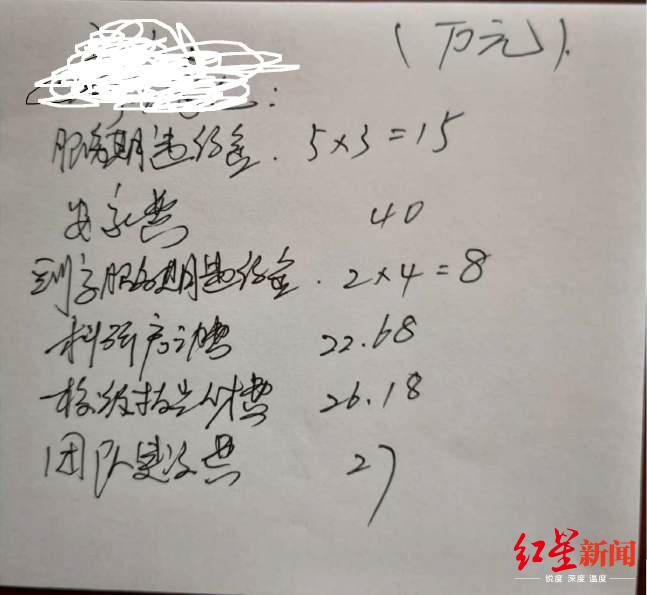 (万元).
:
服务期违约金. 5×3=15
安家费 40
到字服务期违约金. 2×4=8
科研启动费 22.68
校级指导人才费 26.18
团队建设费 27
红星新闻
锐度 深度 温度